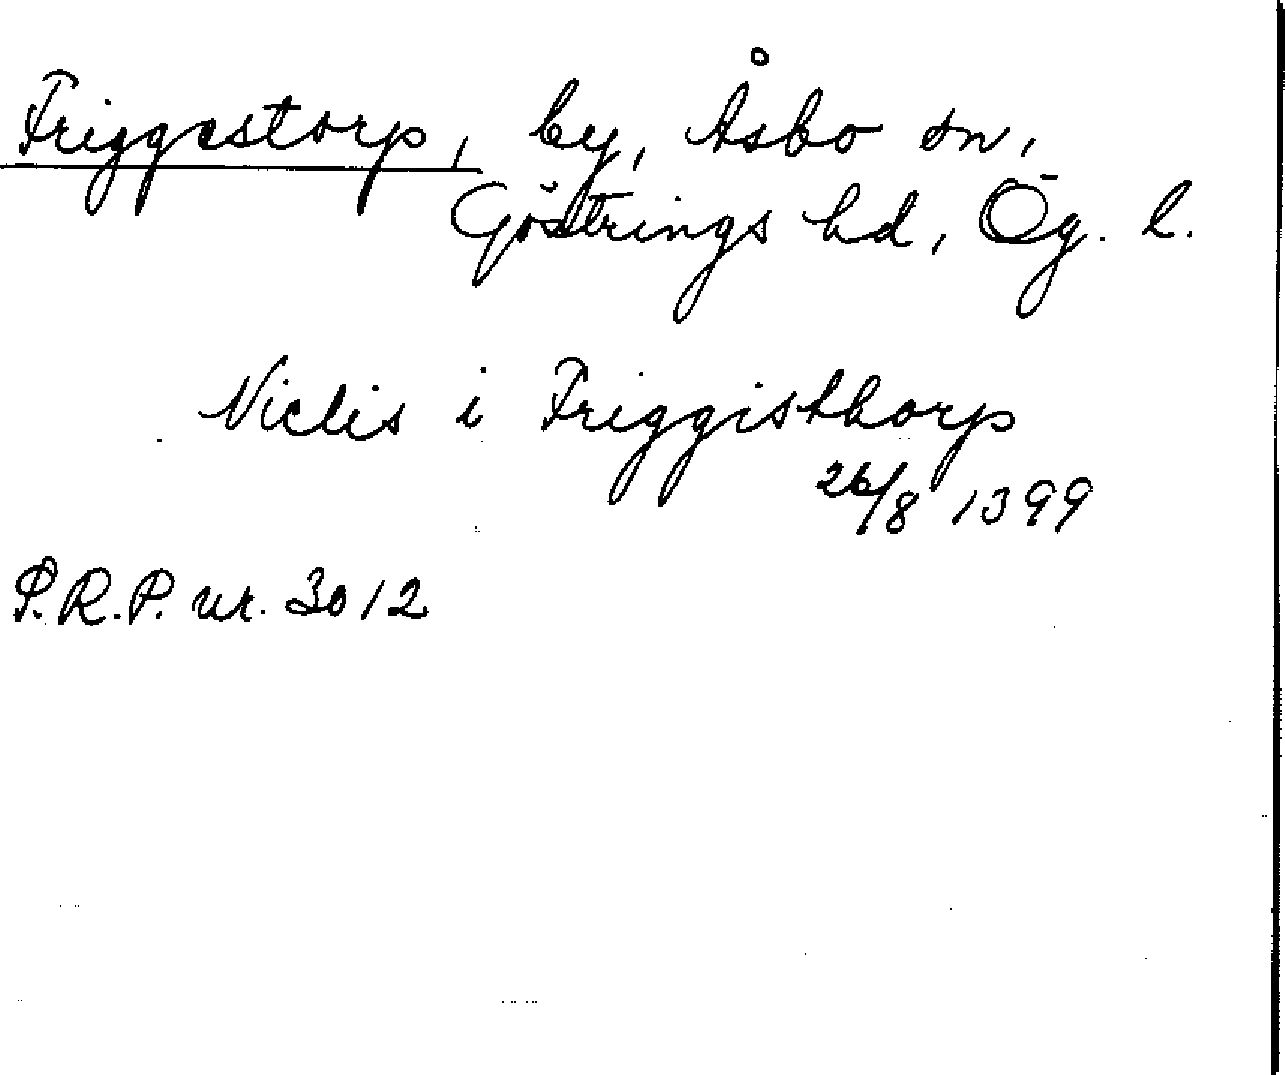 Friggestorp, by, Åsbo sn,
Göstrings hd, Ög. l.
Niclis i Friggisthorp
26/8 1399
P.R.P. nr. 3012